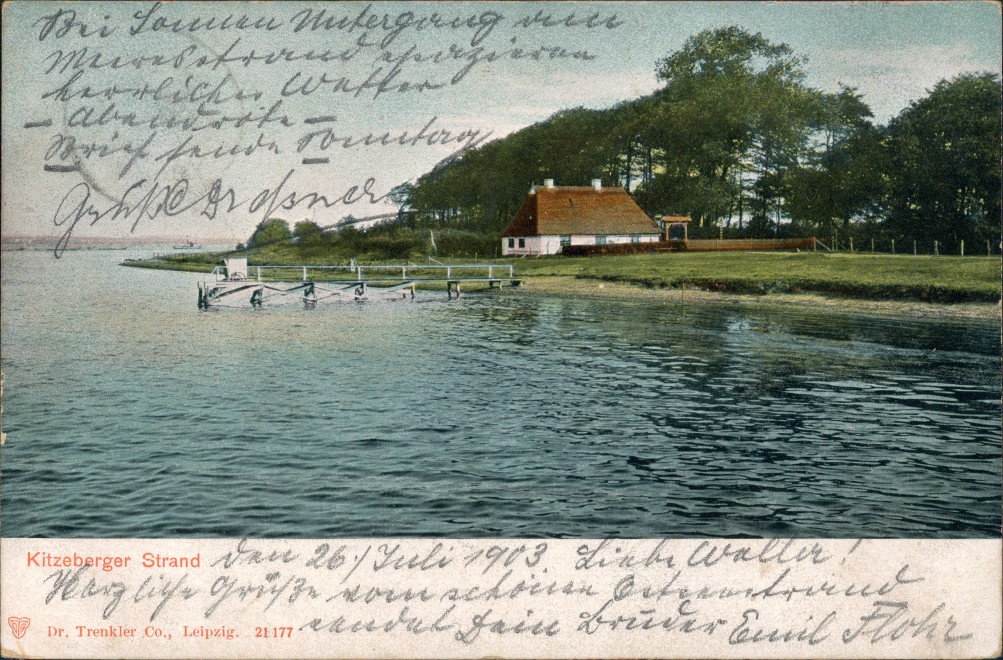 Bei Sonnen Untergang am
Meeresstrand spazieren
herrliches Wetter
– Abendröte –
Brief sende Sonntag
Grüße
Kitzeberger Strand
Den 26./Juli 1903 Liebe !
Herzliche Grüße vom schönen Ostseestrand
sendet Dein Bruder Emil Flohr
Dr. Trenkler Co., Leipzig. 21177